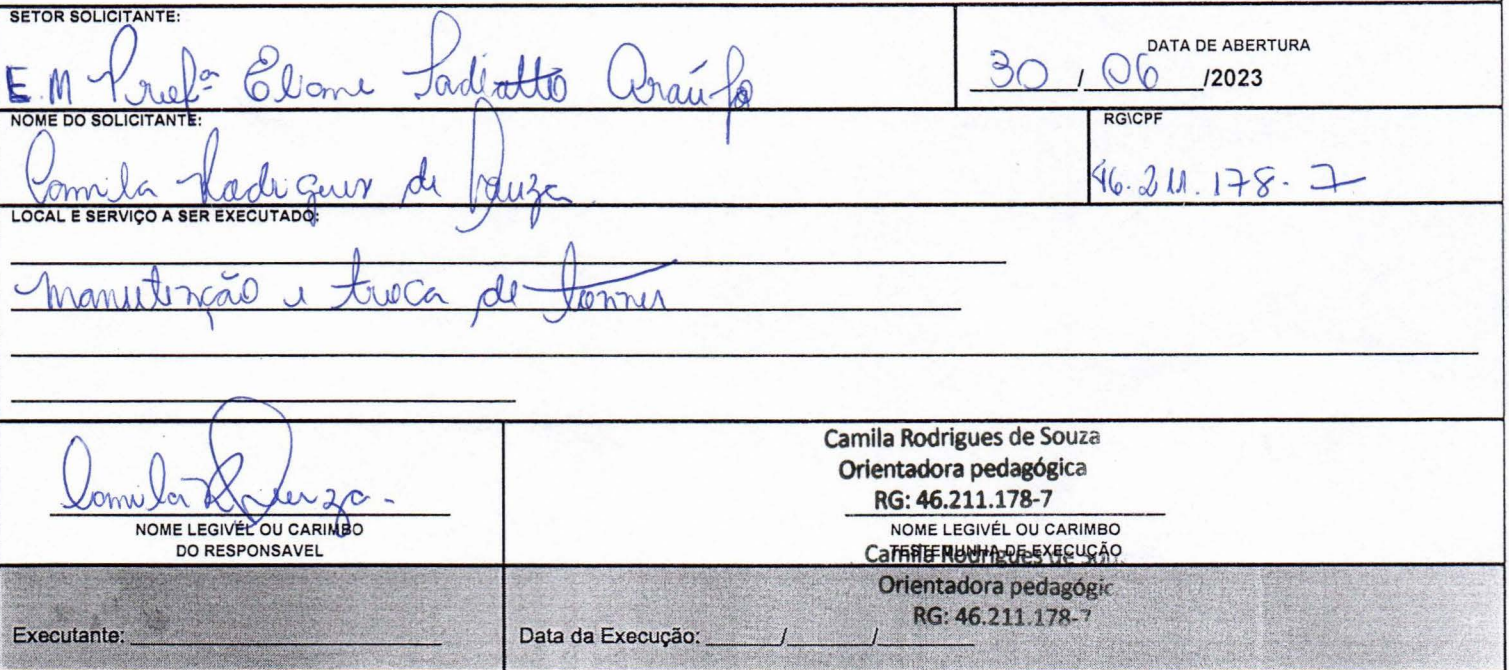 SETOR SOLICITANTE:
E.M Profª Eliane Sadiatto Araújo
DATA DE ABERTURA
30 / 06 /2023
NOME DO SOLICITANTE:
Camila Rodrigues de Souza
RG\CPF
46.211.178-7
LOCAL E SERVIÇO A SER EXECUTADO:
Manutenção e troca de tonner
Camila R Souza
NOME LEGIVÉL OU CARIMBO
DO RESPONSAVEL
Camila Rodrigues de Souza
Orientadora pedagógica
RG: 46.211.178-7
NOME LEGIVÉL OU CARIMBO
TESTEMUNHA DE EXECUÇÃO
Camila Rodrigues de Sou
Orientadora pedagógic
RG: 46.211.178-7
Executante:
Data da Execução: / /